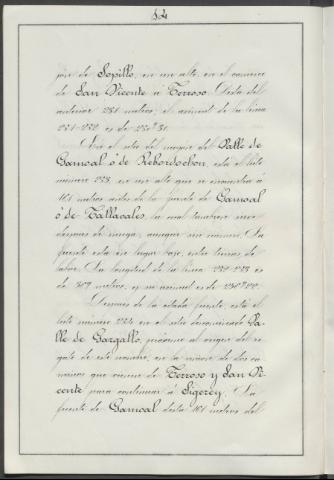 54
jon de Sopillo, en un alto, en el camino
de San Vicente á Terroso. Dista del
anterior 281 metros; el azimut de la línea
221-222 es de
En el sitio del mayor del Valle de
Gamoal ó de Rebordochon, está el hito
número 223, en un alto que se encuentra á
161 metros antes de la fuente de Gamoal
ó de Tallavales, la cual tambien
despues de aunque sin número. La
fuente está en lugar bajo, entre tierras de
labor. La longitud de la línea 222-223 es
de 309 metros, y su azimut es de
Despues de la citada fuente, está el
hito número 224 en el sitio denominado Va-
lle de Gargallo, próximo al origen del re-
gato de este nombre, en la union de dos ca-
minos que vienen de Terroso y San Vi-
cente para continuar á Sigerey. La
fuente de Gamoal dista 161 metros del